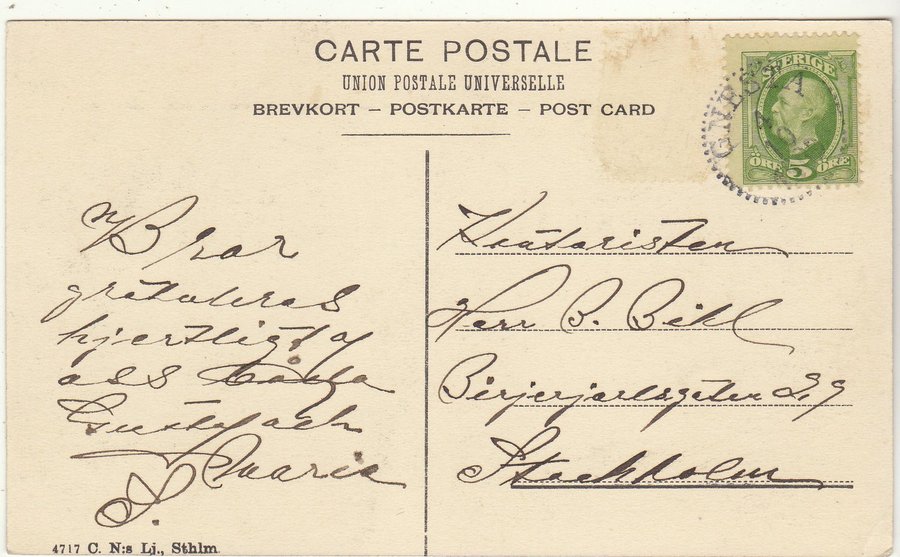 CARTE POSTALE
UNION POSTALE UNIVERSELLE
BREVKORT – POSTKARTE – POST CARD
SVERIGE
GNESTA
ÖRE 5 ÖRE
Bror
gratuleras
hjertligt af
oss båda
Gustaf och
Maria
Herr B. Bihl
Birjerjarlsgatan
Stockholm
4717 C. N:s Lj., Sthlm.